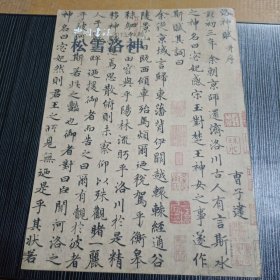 松雪洛神
洛神賦 并序
曹子建
黃初三年余朝京師還濟洛川古人有言斯水
之神名曰宓妃感宋玉對楚王神女之事遂作
斯賦其詞曰
余從京域言歸東藩背伊闕越轘轅經通谷
陵景山日既西傾車殆馬煩爾迺稅駕乎蘅皋
秣駟乎芝田容與乎陽林流眄乎洛川於是精
移神駭忽焉思散俯則未察仰以殊觀睹一麗
人于之畔迺援御者而告之曰爾有覿於彼者
乎彼何人斯若此之豔也御者對曰臣聞河洛之
神名曰宓妃然則君王之所見無迺是乎其狀若